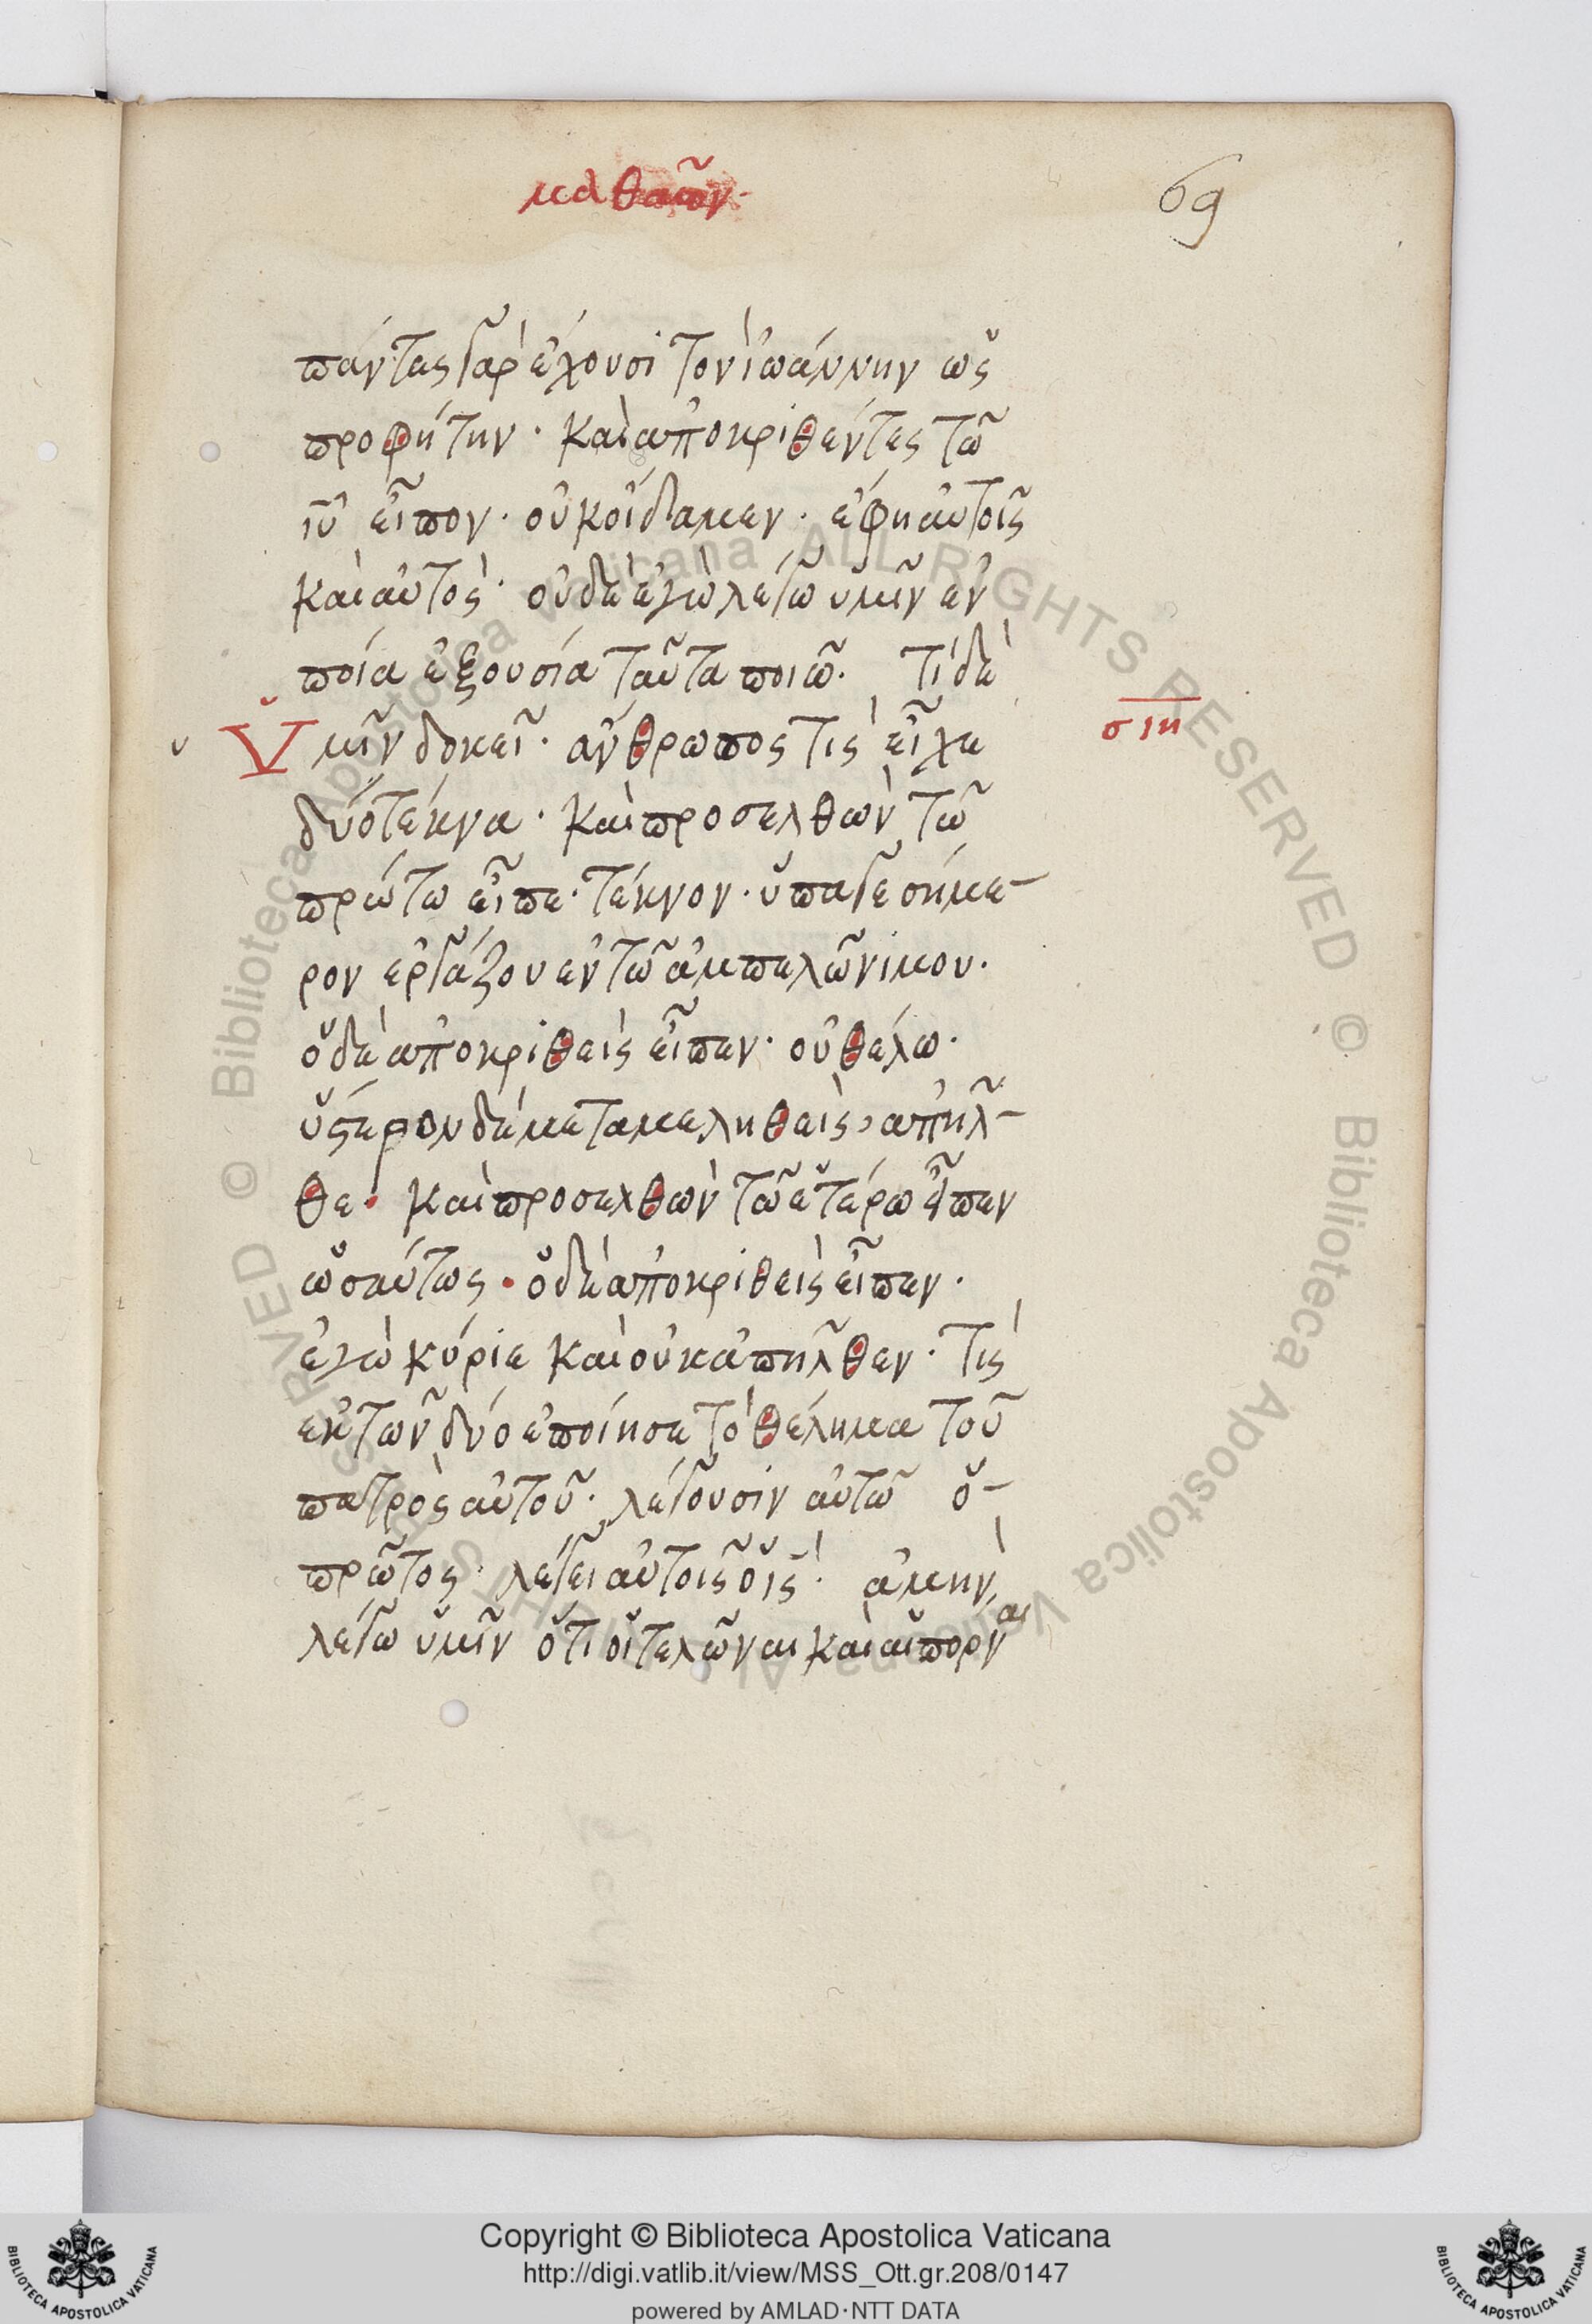 69
πάντες γὰρ ἔχουσι τὸν ἰωάννην ὡς
προφήτην · καὶ ἀποκριθέντες τῶ
ιῦ εἶπον · οὐκ οἴδαμεν · ἔφη αὐτοῖς
καὶ αὐτὸς · οὐδὲ ἐγὼ λέγω ὑμῖν ἐν
ποία ἐξουσία ταῦτα ποιῶ. τί δὲ
Ὑμῖν δοκεῖ · ἄνθρωπος τὶς εἶχε
σιη
δύο τέκνα · καὶ προσελθὼν τῶ
πρώτω εἶπε · τέκνον · ὕπαγε σήμε-
ρον ἐργάζου ἐν τῶ ἀμπελῶνί μου.
ὁ δὲ ἀποκριθεὶς εἶπεν · οὐ θέλω.
ὕστερον δὲ μεταμεληθεὶς, ἀπῆλ-
θε · καὶ προσελθὼν τῶ ἑτέρω εἶπεν
ὡσαύτως · ὁ δὲ ἀποκριθεὶς εἶπεν.
ἐγὼ κύριε καὶ οὐκ ἀπῆλθεν · τίς
ἐκ τῶν δύο ἐποίησε τὸ θέλημα τοῦ
πατρὸς αὐτοῦ · λέγουσιν αὐτῶ ὁ-
πρῶτος · λέγει αὐτοῖς ὁ ις · ἀμὴν
λέγω ὑμῖν ὅτι οἱ τελῶναι καὶ αἱ πόρναι
Copyright © Biblioteca Apostolica Vaticana
http://digi.vatlib.it/view/MSS_Ott.gr.208/0147
powered by AMLAD·NTT DATA